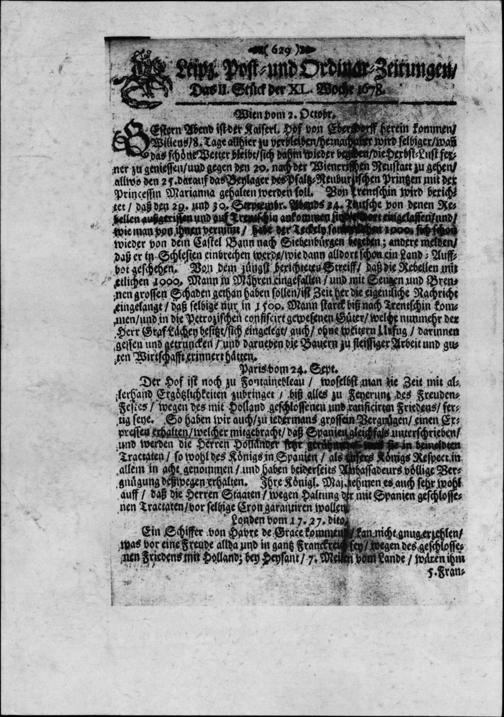 ( 629 )
Leipz. Post- und Ordinar-Zeitungen/
Das II. Stück der XL. Woche 1678.
Wien vom 2. Octobr.
GEstern Abend ist der Kaiserl. Hof von Ebersdorff herein kommen/
Willens/ 8. Tage allhier zu verbleiben/ hernachher wird selbiger/ waß
das schöne Wetter bleibt/ sich dahin wieder begeben/ die Herbst-Lust fer-
ner zu geniessen/ und gegen den 20. nach der Wienerischen Neustatt zu gehen/
allwo den 25. darauf das Beylager des Pfaltz-Neuburgischen Printzen mit der
Princessin Marianna gehalten werden soll. Von Trentschin wird berich-
tet/ daß den 29. und 30. Septembr. Abends 24. Teutsche von denen Re-
bellen außgerissen und auf Trentschin ankommen eingelassen/ und
wie man von ihnen vernim̃t/ habe der Teckely 1000. sich schon
wieder von dem Castel Bann nach Siebenbürgen begeben; andere melden/
daß er in Schlesien einbrechen werde/ wie dann alldort schon ein Land-Auff-
bot geschehen. Von dem jüngst berichteten Streiff/ daß die Rebellen mit
etlichen 1000. Mann in Mähren eingefallen/ und mit Sengen und Bren-
nen grossen Schaden gethan haben sollen/ ist Zeit her die eigentliche Nachricht
eingelangt/ daß selbige nur in 1500. Mann starck biß nach Trentschin kom-
men/ und in die Petrozischen confiscirt gewesenen Güter/ welche nunmehr der
Herr Graf besitzt/ sich eingelegt/ auch/ ohne weitern Unfug/ darinnen
gessen und getruncken/ und darneben die Bauern zu fleissiger Arbeit und gu-
ten Wirtschafft erinnert hätten.
Paris vom 24. Sept.
Der Hof ist noch zu Fontainebleau/ woselbst man die Zeit mit al-
lerhand Ergötzlichkeiten zubringet/ biß alles zu Feyerung des Freuden-
Festes/ wegen des mit Holland geschlossenen und ratificirten Friedens/ fer-
tig seye. So haben wir auch/ zu jedermans grossem Vergnügen/ einen Ex-
pressen erhalten/ welcher mitgebracht/ daß Spanien gleichfals unterschrieben/
und werden die Herren Holländer sehr gerühmet/ daß sie in bemeldten
Tractaten/ so wohl des Königs in Spanien/ als unsers Königs Respect in
allem in acht genommen/ und haben beiderseits Ambassadeurs völlige Ver-
gnügung deßwegen erhalten. Ihre Königl. Maj. nehmen es auch sehr wohl
auff/ daß die Herren Staaten/ wegen Haltung der mit Spanien geschlosse-
nen Tractaten/ vor selbige Cron garantiren wollen.
Londen vom 17. 27. dito.
Ein Schiffer von Havre de Grace kommend/ kan nicht gnug erzehlen/
was vor eine Freude allda und in gantz Franckreich sey/ wegen des geschlosse-
nen Friedens mit Holland; bey Heysant/ 7. Meilen vom Lande/ wären ihm
5. Fran-